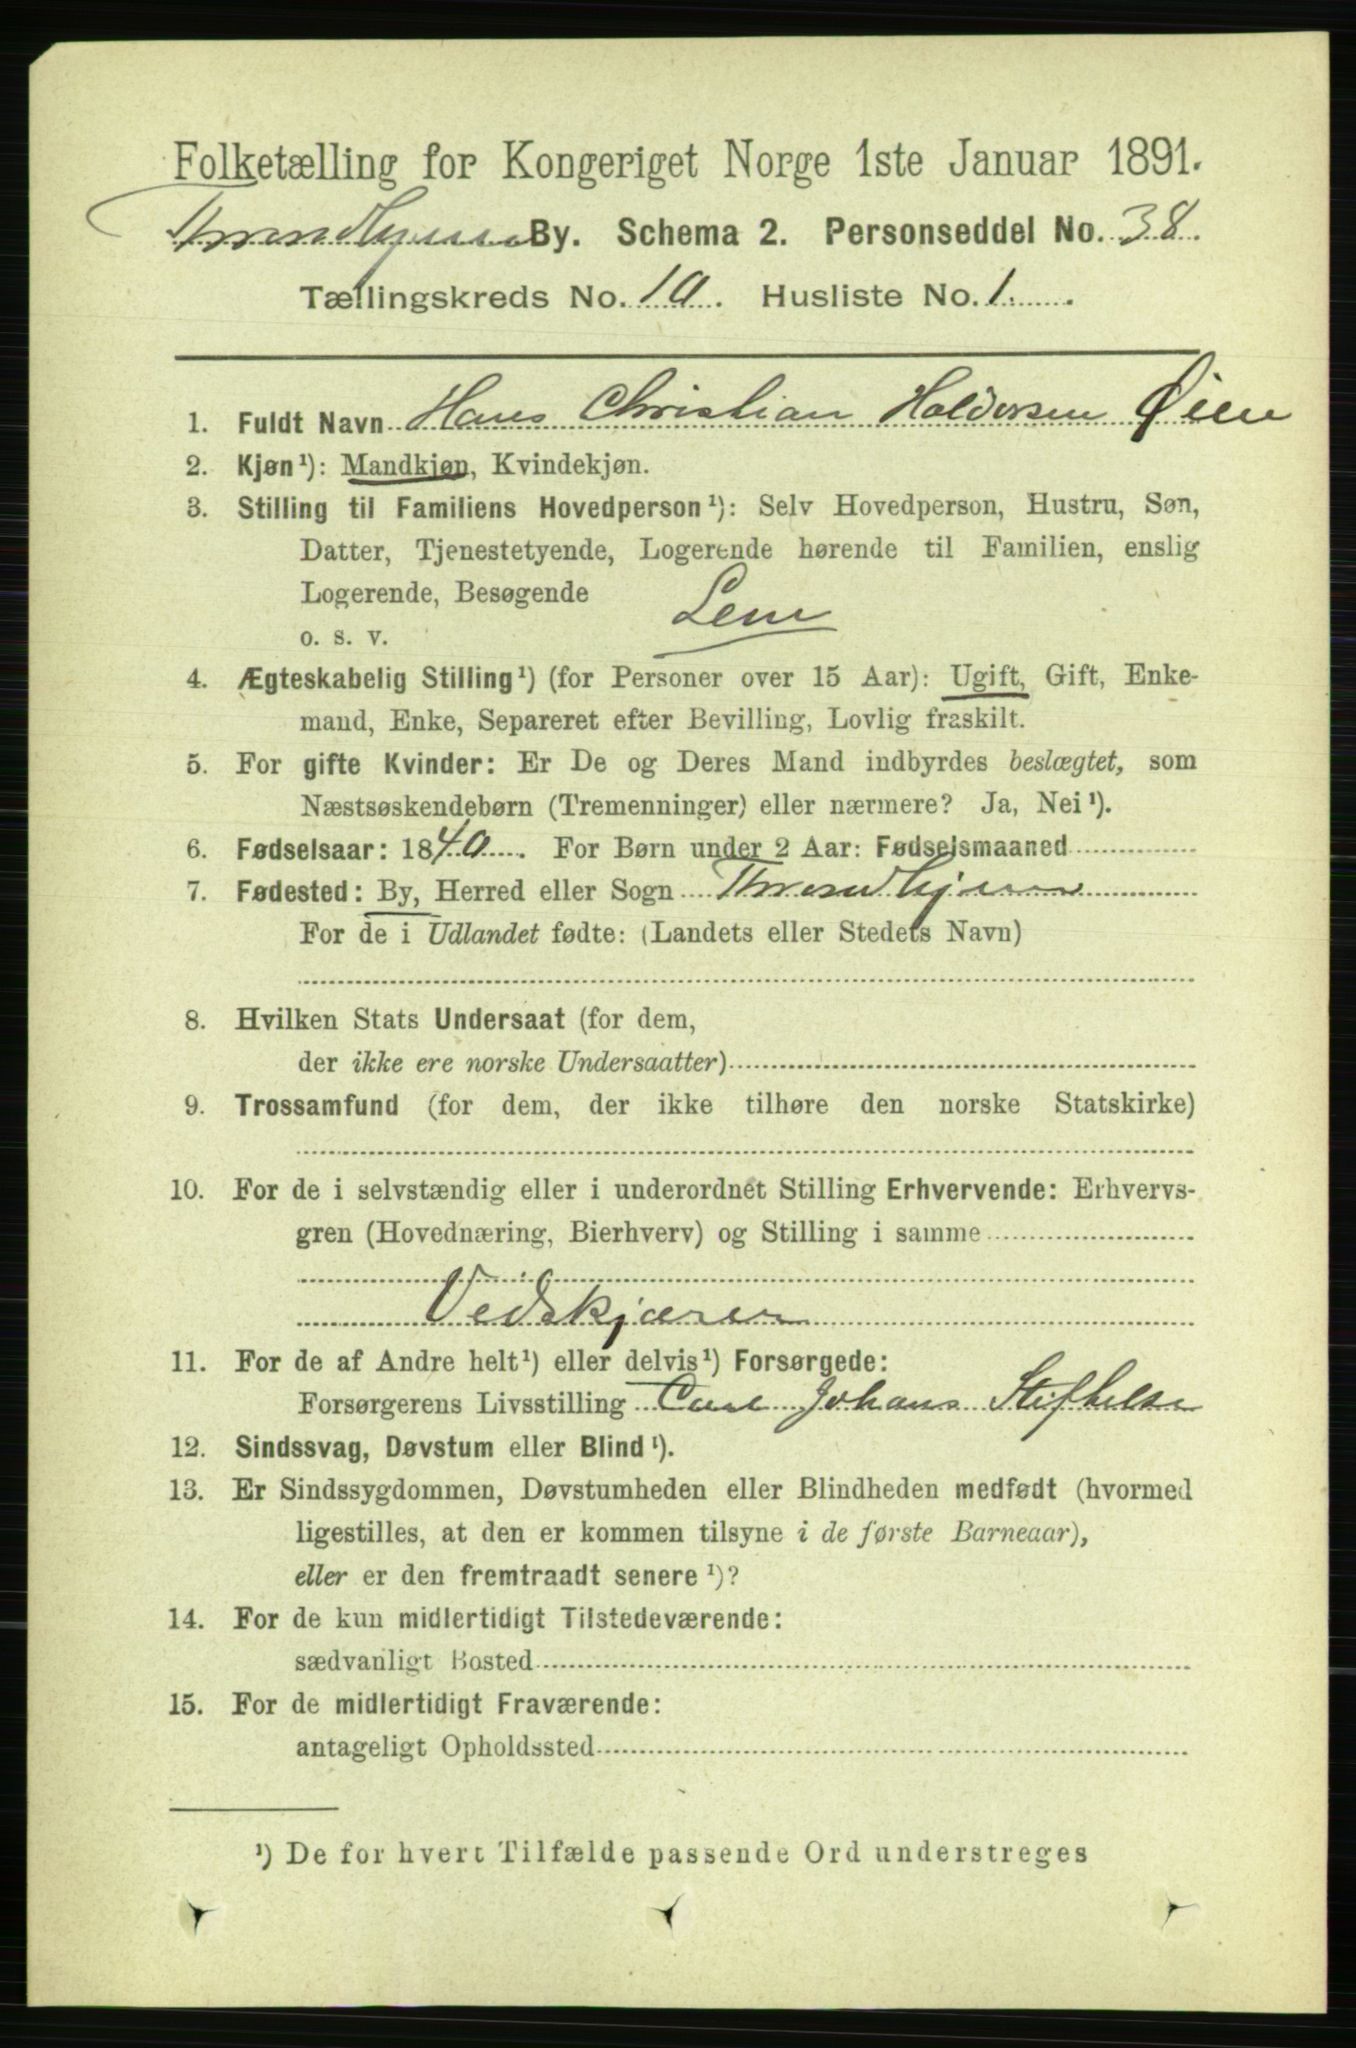 Folketælling for Kongeriget Norge 1ste Januar 1891.
Throndhjems By. Schema 2. Personseddel No. 38.
Tællingskreds No. 10. Husliste No. 1.
1. Fuldt Navn Hans Christian Haldorsen Øien
2. Kjøn¹): Mandkjøn, Kvindekjøn.
3. Stilling til Familiens Hovedperson¹): Selv Hovedperson, Hustru, Søn,
Datter, Tjenestetyende, Logerende hørende til Familien, enslig
Logerende, Besøgende
o. s. v. Lem
4. Ægteskabelig Stilling¹) (for Personer over 15 Aar): Ugift, Gift, Enke-
mand, Enke, Separeret efter Bevilling, Lovlig fraskilt.
5. For gifte Kvinder: Er De og Deres Mand indbyrdes beslægtet, som
Næstsøskendebørn (Tremenninger) eller nærmere? Ja, Nei¹).
6. Fødselsaar: 1840. For Børn under 2 Aar: Fødselsmaaned
7. Fødested: By, Herred eller Sogn Throndhjem
For de i Udlandet fødte: (Landets eller Stedets Navn)
8. Hvilken Stats Undersaat (for dem,
der ikke ere norske Undersaatter)
9. Trossamfund (for dem, der ikke tilhøre den norske Statskirke)
10. For de i selvstændig eller i underordnet Stilling Erhvervende: Erhvervs-
gren (Hovednæring, Bierhverv) og Stilling i samme
Vedskjærer
11. For de af Andre helt¹) eller delvis¹) Forsørgede:
Forsørgerens Livsstilling Carl Johans Stiftelse
12. Sindssvag, Døvstum eller Blind¹).
13. Er Sindssygdommen, Døvstumheden eller Blindheden medfødt (hvormed
ligestilles, at den er kommen tilsyne i de første Barneaar),
eller er den fremtraadt senere¹)?
14. For de kun midlertidigt Tilstedeværende:
sædvanligt Bosted
15. For de midlertidigt Fraværende:
antageligt Opholdssted
¹) De for hvert Tilfælde passende Ord understreges